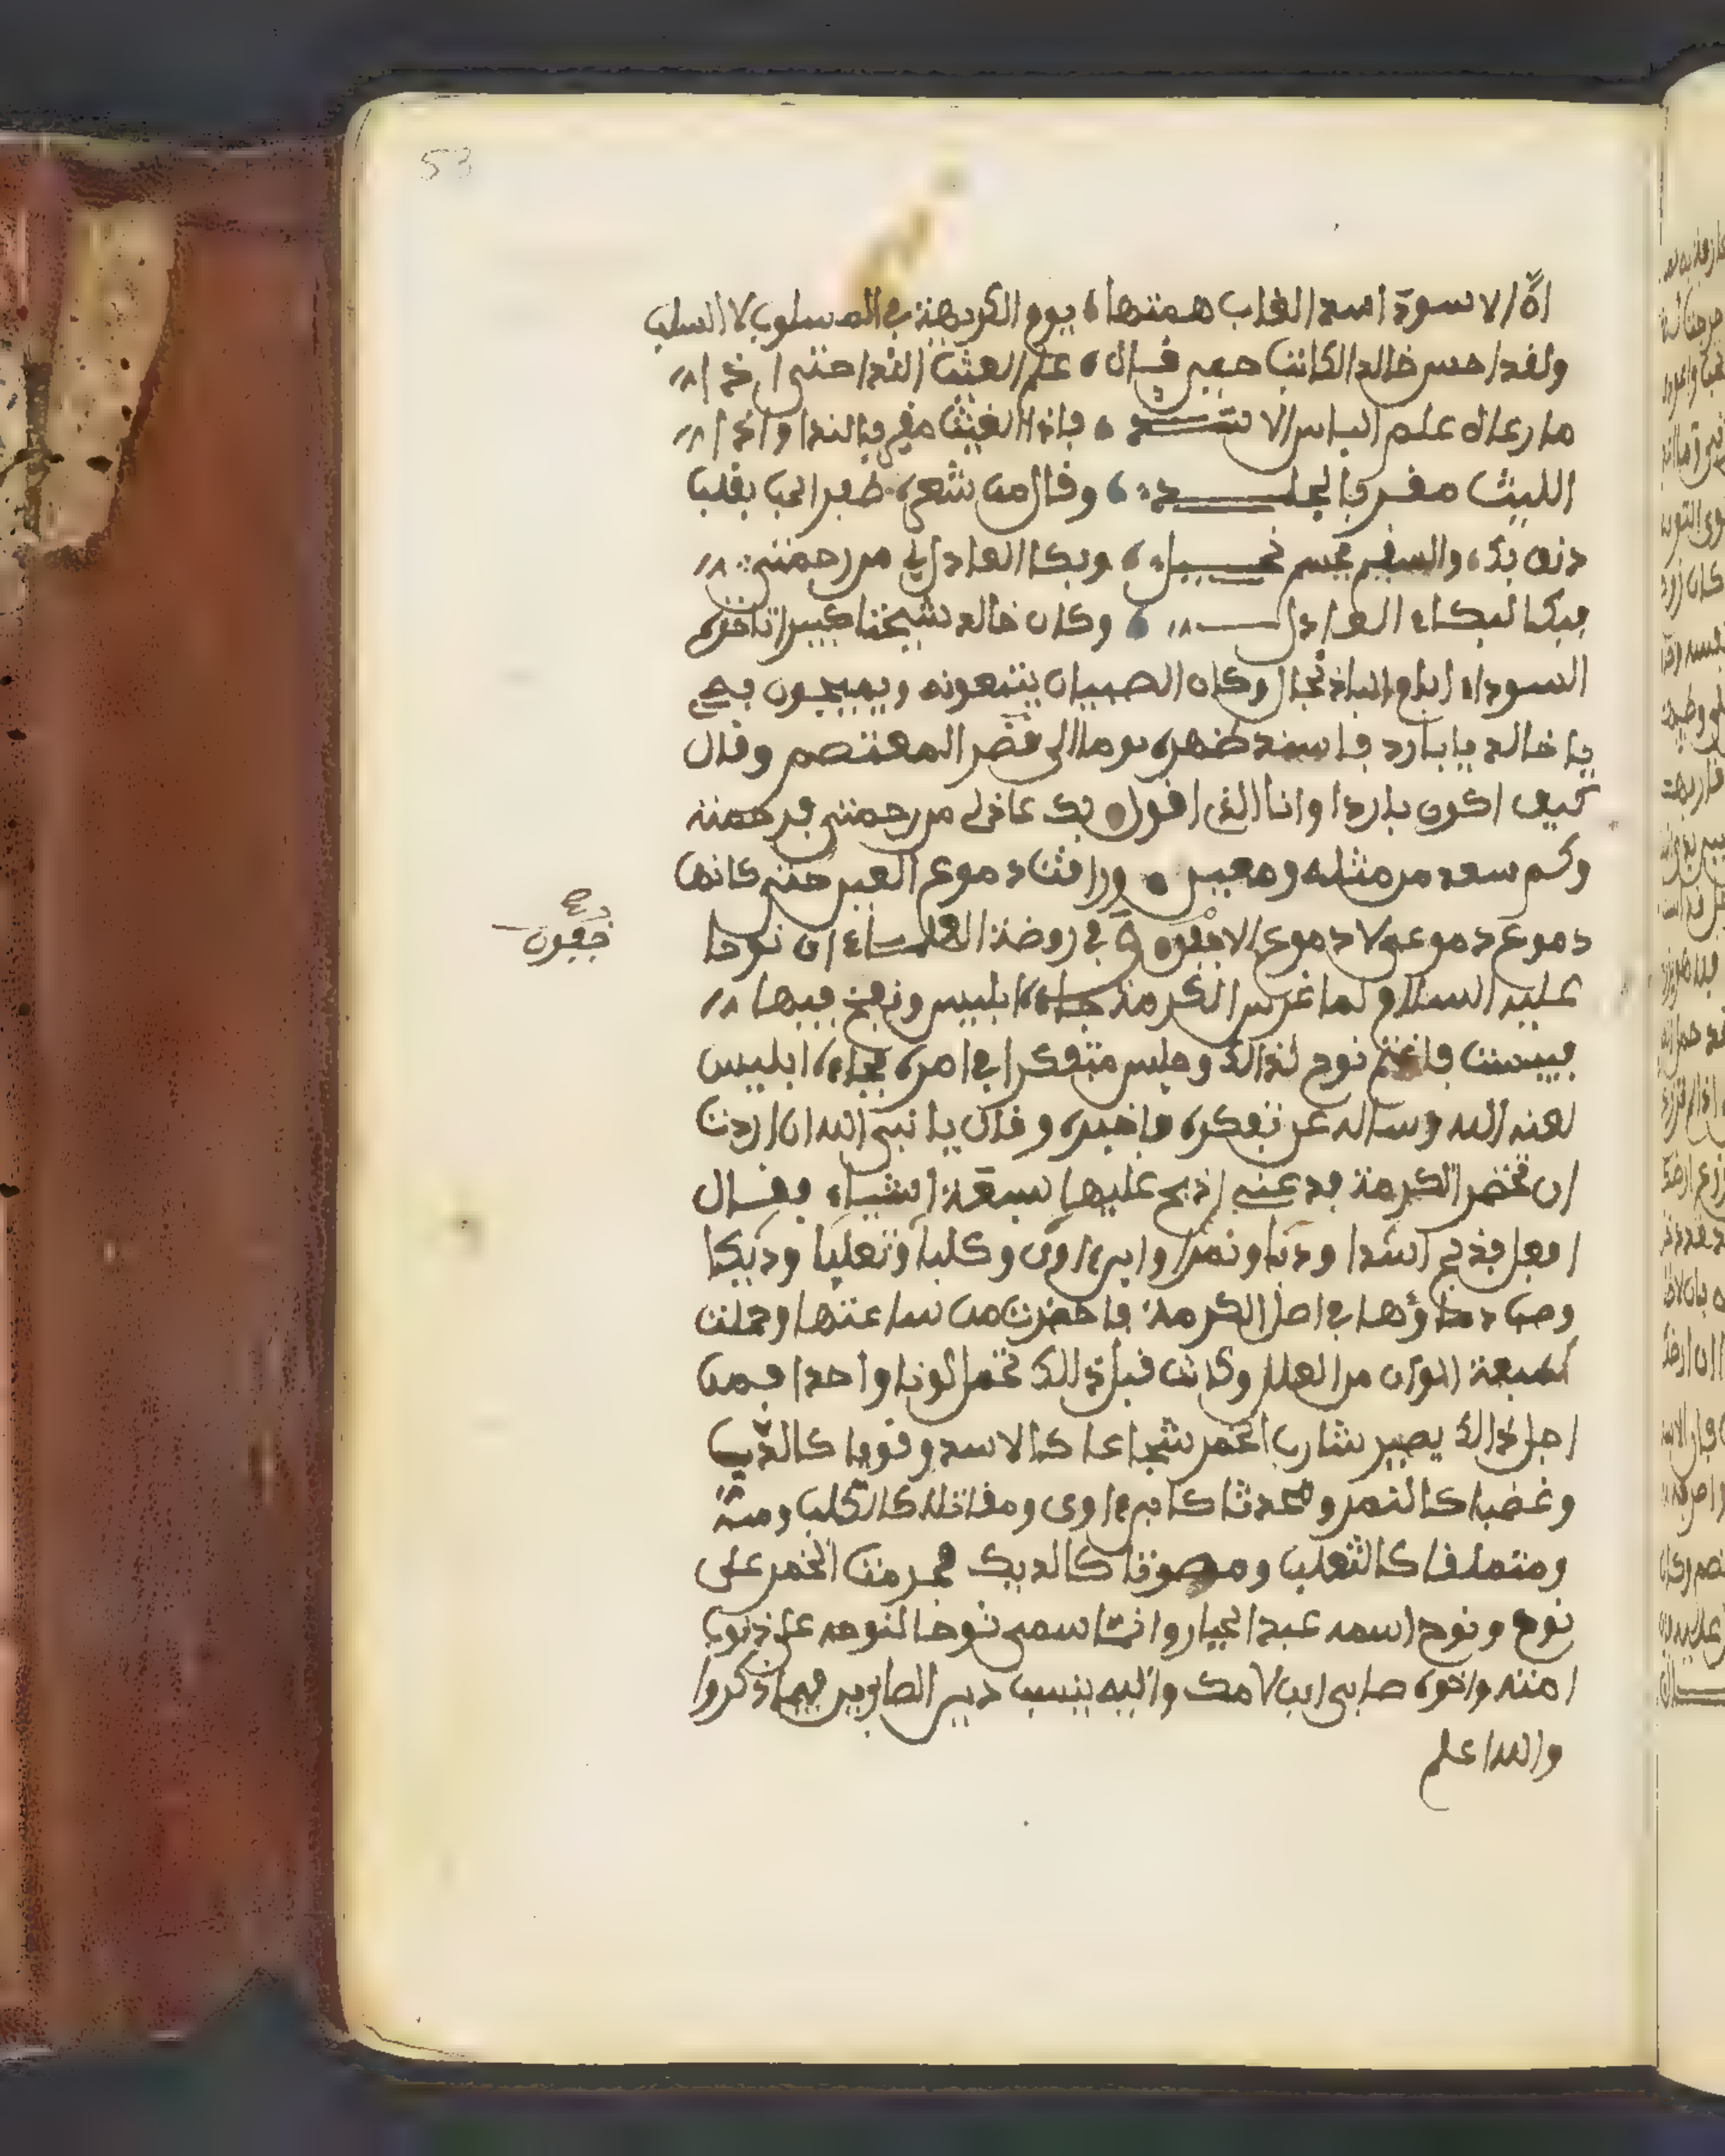 53
ان الاسود اسد الغاب همتها، يوم الكريهة في المسلوب لا السلب
ولقد احسن خالد الكاتب حين قال، علم الغيث الندا حتى اذا
ما رعاه علم الباس الاسد، فاذا الغيث مقر بالندا واذا
الليث مقر بالجلد، وقال من شعره، ظفر الحب بقلب
دنف بك، والسقم بجسم نحيل، وبكا العاذل لي من رحمتي
فبكا لبكاء العاذل، وكان خالد شيخا كبيرا تاخذه
السوداء ايام الباذنجال وكان الصبيان يتبعونه ويصيحون به
يا خالد يا بارد فاسند ظهره يوما الى قصر المعتصم وقال
كيف اكون باردا وانا الذي اقول بك عاذلي من رحمتي فرحمته
وكم سعد من مثله ومعين، ورافت دموع العين حتى كانها
دموع دموعي لا دموع الاجفون في روضة العلماء ان نوحا
دمع
جفون
عليه السلام لما غرس الكرمة جاء ابليس ونفخ فيها
فيبست فاغتم نوح لذالك وجلس متفكرا في امره فجاءه ابليس
لعنه الله وساله عن تفكره فاخبره وقال يا نبي الله ان اردت
ان تخضر الكرمة فدعني اذبح عليها سبعة اشياء فقال
افعل فذبح اسدا ودبا ونمرا وابن اوى وكلبا وثعلبا وديكا
وصب دماؤها في اصل الكرمة فاخضرت من ساعتها وحملت
سبعة الوان من العلل وكانت قبل ذلك تحمل لونا واحدا فمن
اجل ذالك يصير شارب الخمر شجاعا كالاسد وقويا كالدب
وغضبا كالنمر ومحدثا كابن اوى ومقاتله كالكلب
ومتملقا كالثعلب ومصوتا كالديك فحرمت الخمر على
نوح ونوح اسمه عبد الجبار وانما سمي نوحا لنوحه على ذنوب
امته واخوه صابي ابن لامك واليه ينسب دين الصابين فيما ذكروا
والله اعلم